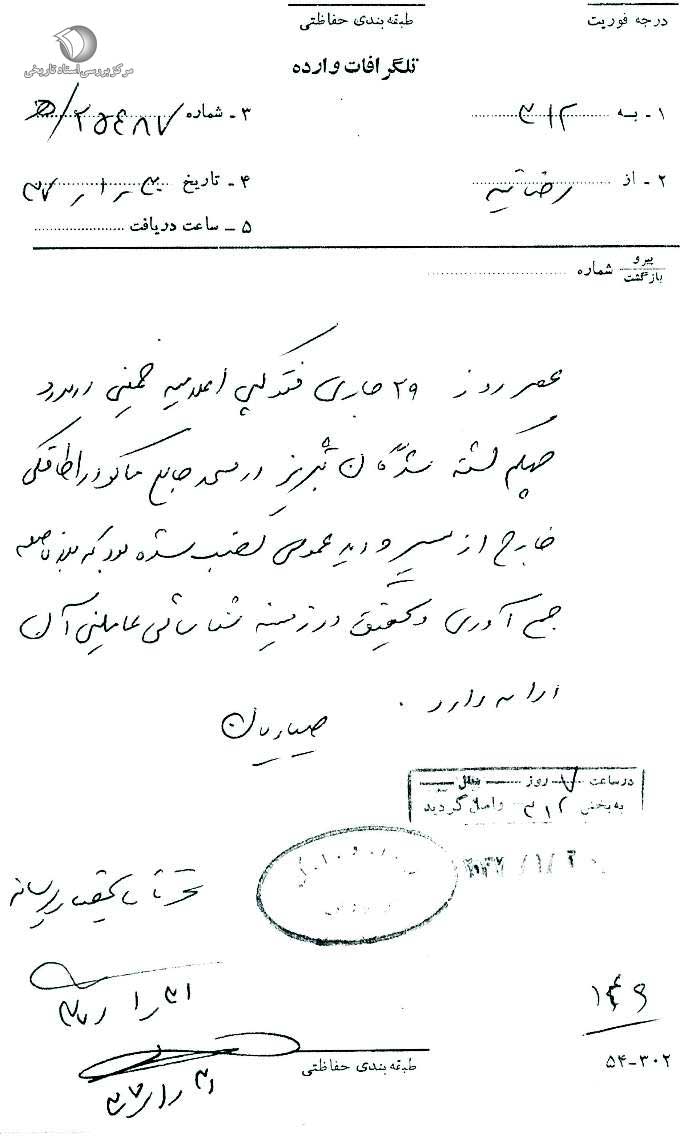 درجه فوریت
طبقه‌بندی حفاظتی
مرکز بررسی اسناد تاریخی
تلگرافات وارده
۱ - به ۳۱۲
۳ - شماره ۲۵۴۸۷/
۲ - از رضائیه
۴ - تاریخ ۳۷
۵ - ساعت دریافت
پیرو
بازگشت
شماره
عصر روز ۲۹ جاری فتوکپی اعلامیه خمینی در مورد
چهلم کشته شدگان تبریز در مسجد جامع ماکو در اطاقکی
خارج از مسیر و دید عمومی نصب شده بود که بلافاصله
جمع آوری و تحقیق در زمینه شناسائی عاملین آن
ادامه دارد.
درساعت ۷ روز
به‌بخش ۳۱۲ واصل گردید
۱۴۹
۵۴-۳۰۲
طبقه‌بندی حفاظتی